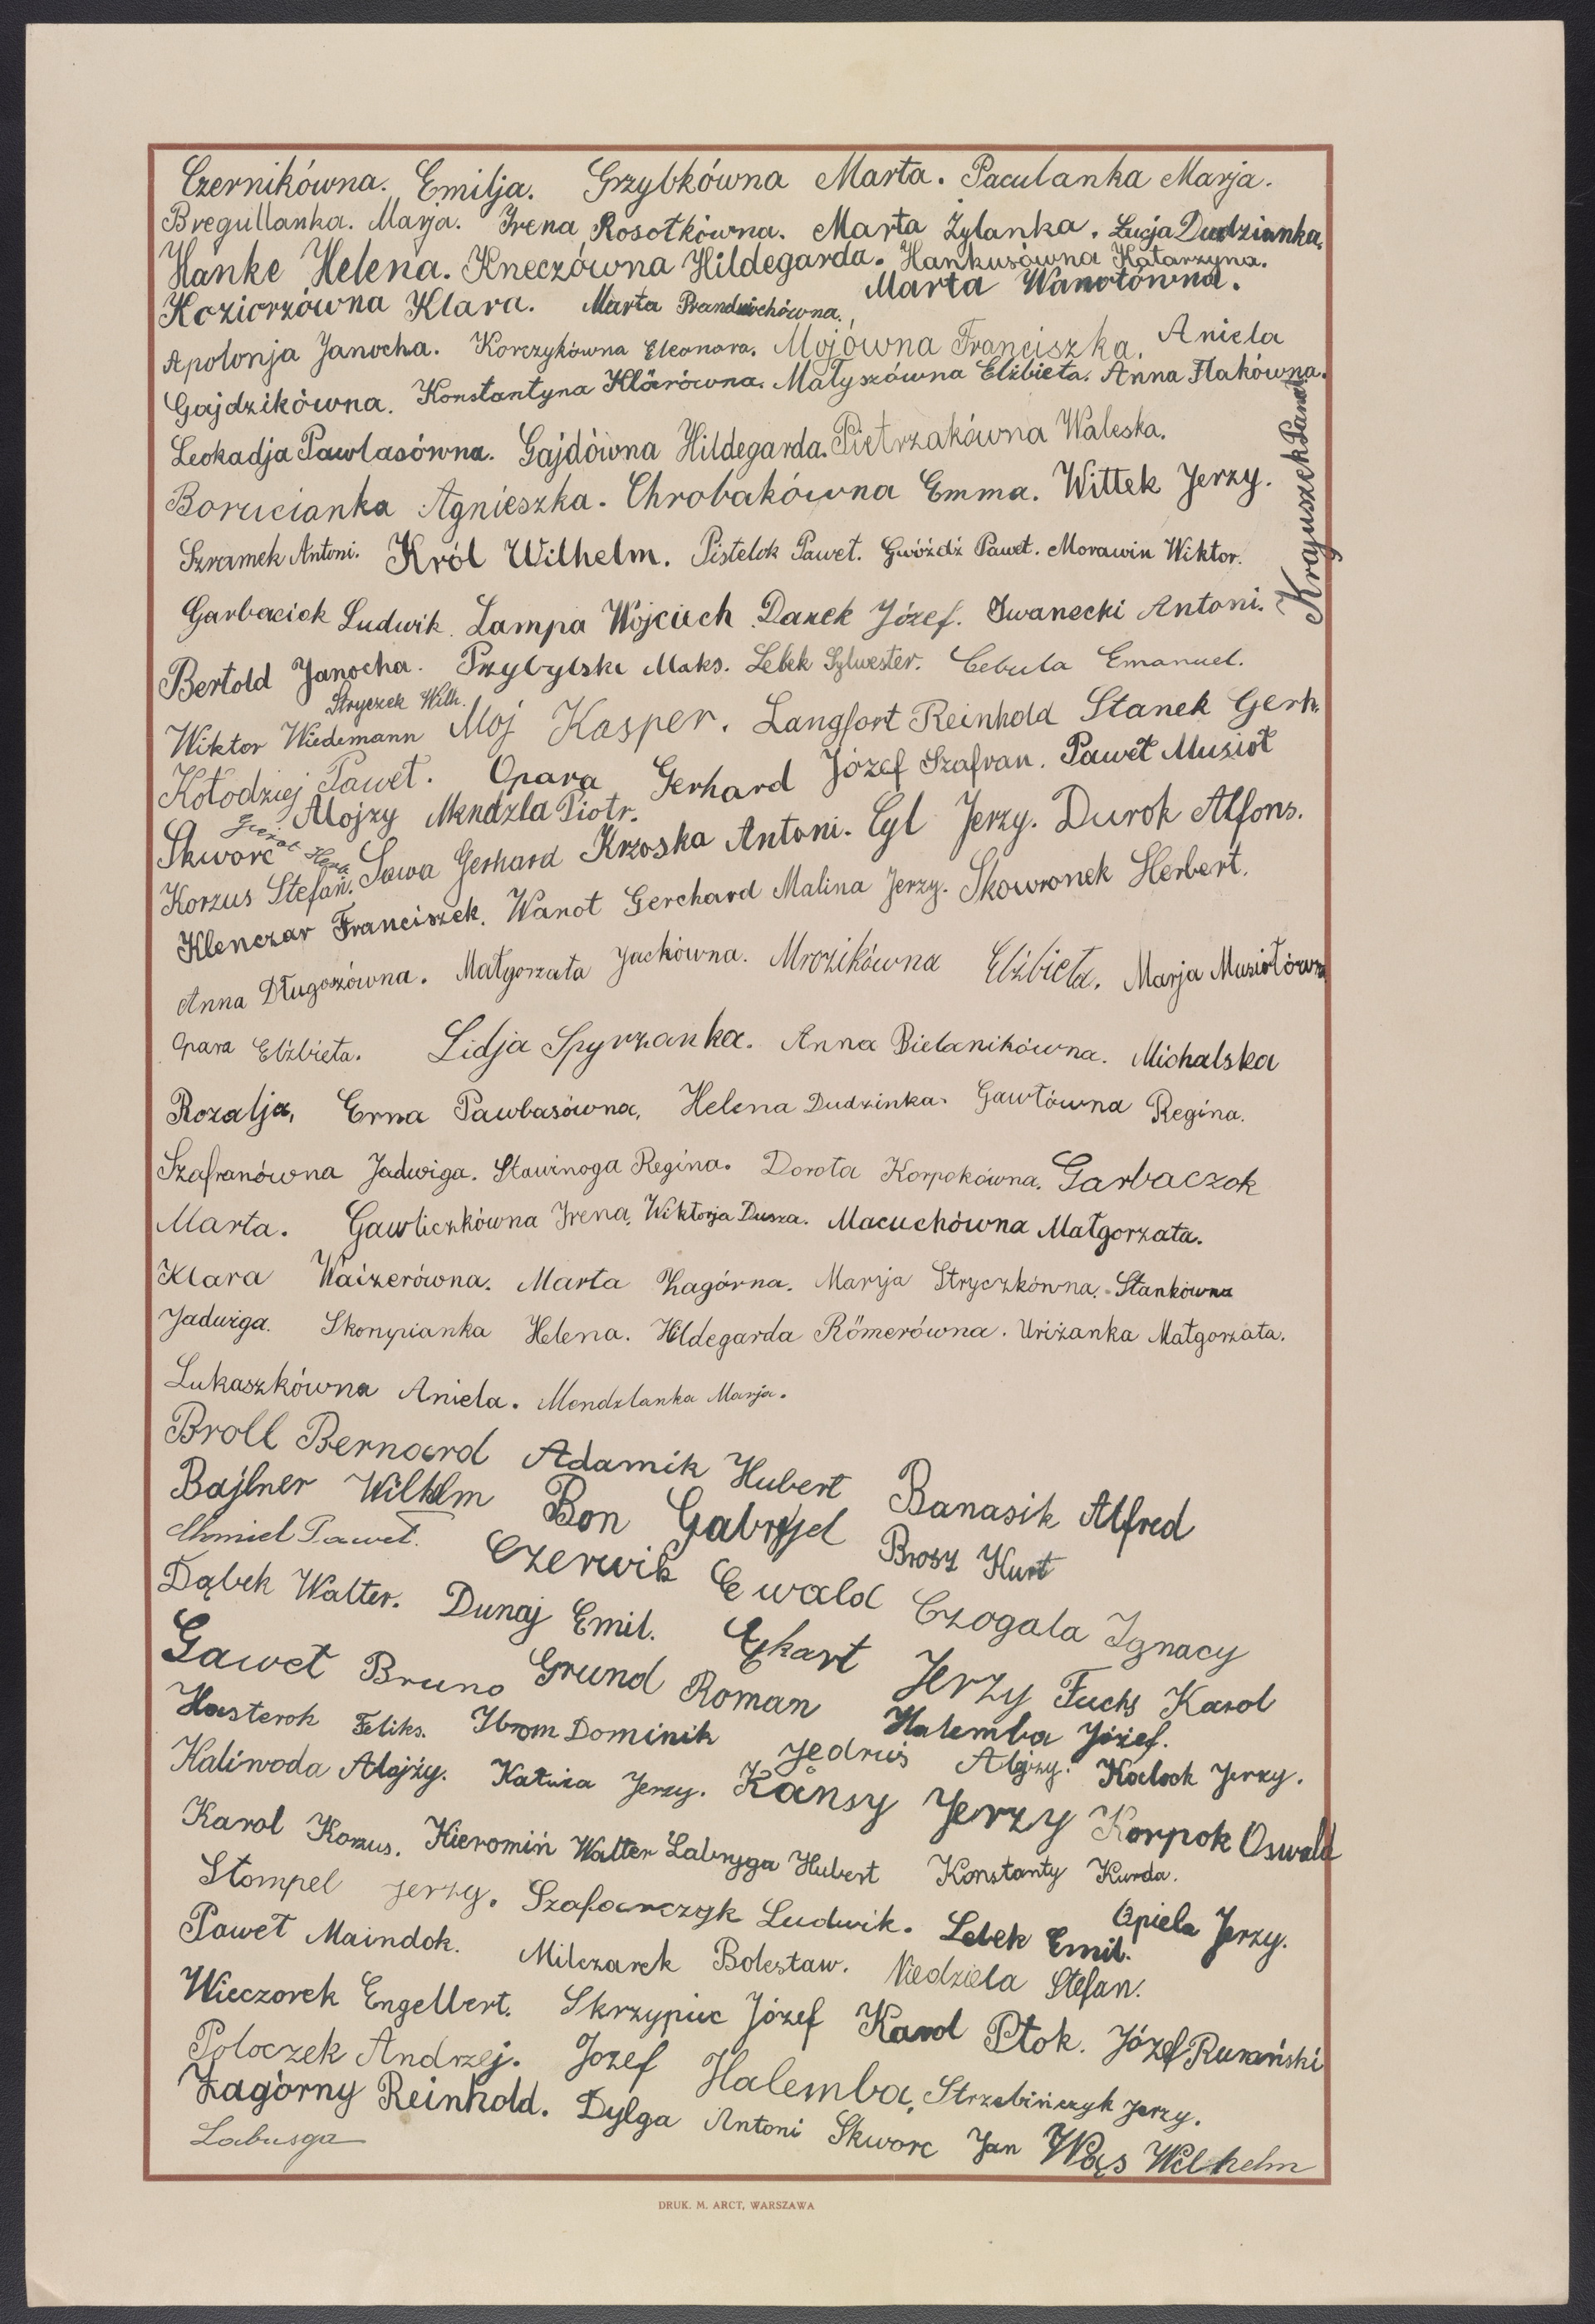 Czernikówna. Emilja. Grzybkówna Marta. Paculanka Marja.
Bregullanka. Marja. Irena Rosotkówna. Marta Żylanka. Łucja Dudzianka,
Hanke Helena. Kneczówna Hildegarda. Hankusówna Katarzyna.
Koziorzówna Klara. Marta Marta Wanotówna.
Apolonja Janocha. Korczykówna Eleonora. Mojówna Franciszka. Aniela
Gajdzikówna. Konstantyna Klärówna. Małyszówna Elżbieta. Anna Flakówna.
Leokadja Pawlasówna. Gajdówna Hildegarda. Pietrzakówna Waleska.
Borucianka Agnieszka. Chrobakówna Emma. Wittek Jerzy.
Krajuszek
Szramek Antoni. Król Wilhelm. Pistelok Paweł. Gwóźdź Paweł. Morawin Wiktor.
Garbaciok Ludwik. Lampa Wojciech Danek Józef. Iwanecki Antoni.
Bertold Janocha. Przybylski Maks. Lebek Sylwester. Cebula Emanuel.
Stryczek Wilh.
Wiktor Wiedemann Moj Kasper. Langfort Reinhold Stanek Gerh.
Kołodziej Paweł. Opara Gerhard Józef Szafran. Paweł Musioł
Alojzy Mendzla Piotr.
Skworc Sowa Gerhard Krzoska Antoni. Cyl Jerzy. Durok Alfons.
Korzus Stefan.
Klenczar Franciszek. Wanot Gerchard Malina Jerzy. Skowronek Herbert.
Anna Długoszówna. Małgorzata Jackówna. Mrozikówna Elżbieta. Marja Musiołówna
Opara Elżbieta. Lidja Spyrzanka. Anna Bielanikówna. Michalska
Rozalja, Erna Pawlasówna, Helena Dudzinka. Gawłówna Regina.
Szafranówna Jadwiga. Sławinoga Regina. Dorota Korpokówna. Garbaczok
Marta. Gawliczkówna Irena, Wiktorja Dusza. Macuchówna Małgorzata.
Klara Waizerówna. Marta Zagórna. Marija Stryczkówna. Stankówna
Jadwiga. Skorupianka Helena. Hildegarda Römerówna. Uriżanka Małgorzata.
Lukaszkówna Aniela. Mendzlanka Marja.
Broll Bernard Adamik Hubert Banasik Alfred
Bajlner Wilhelm Bon Gabryel Brosz Kurt
Chmiel Paweł. Czerwik Ewald Czogala Ignacy
Dąbek Walter. Dunaj Emil. Ekart Jerzy Fuchs Karol
Gaweł Bruno Grund Roman Halemba Józef.
Hasterok Feliks. Ibrom Dominik Jedruś Alojzy. Kaelock Jerzy.
Kaliwoda Alojży. Katuża Jerzy. Kånsy Jerzy Korpok Oswald
Karol Korzus. Kieromin Walter Labryga Hubert Konstanty Kurda.
Stompel Jerzy. Szafarczyk Ludwik. Lebek Emil. Opiela Jerzy.
Paweł Maindok. Milczarek Bolesław. Niedziela Stefan.
Wieczorek Engelbert. Skrzypiec Józef Karol Ptok. Józef Rurański
Poloczek Andrzej. Jozef Halemba, Strzebińczyk Jerzy.
Zagórny Reinhold. Dylga Antoni Skworc Jan Wąs Wilhelm
Labusga
DRUK. M. ARCT, WARSZAWA